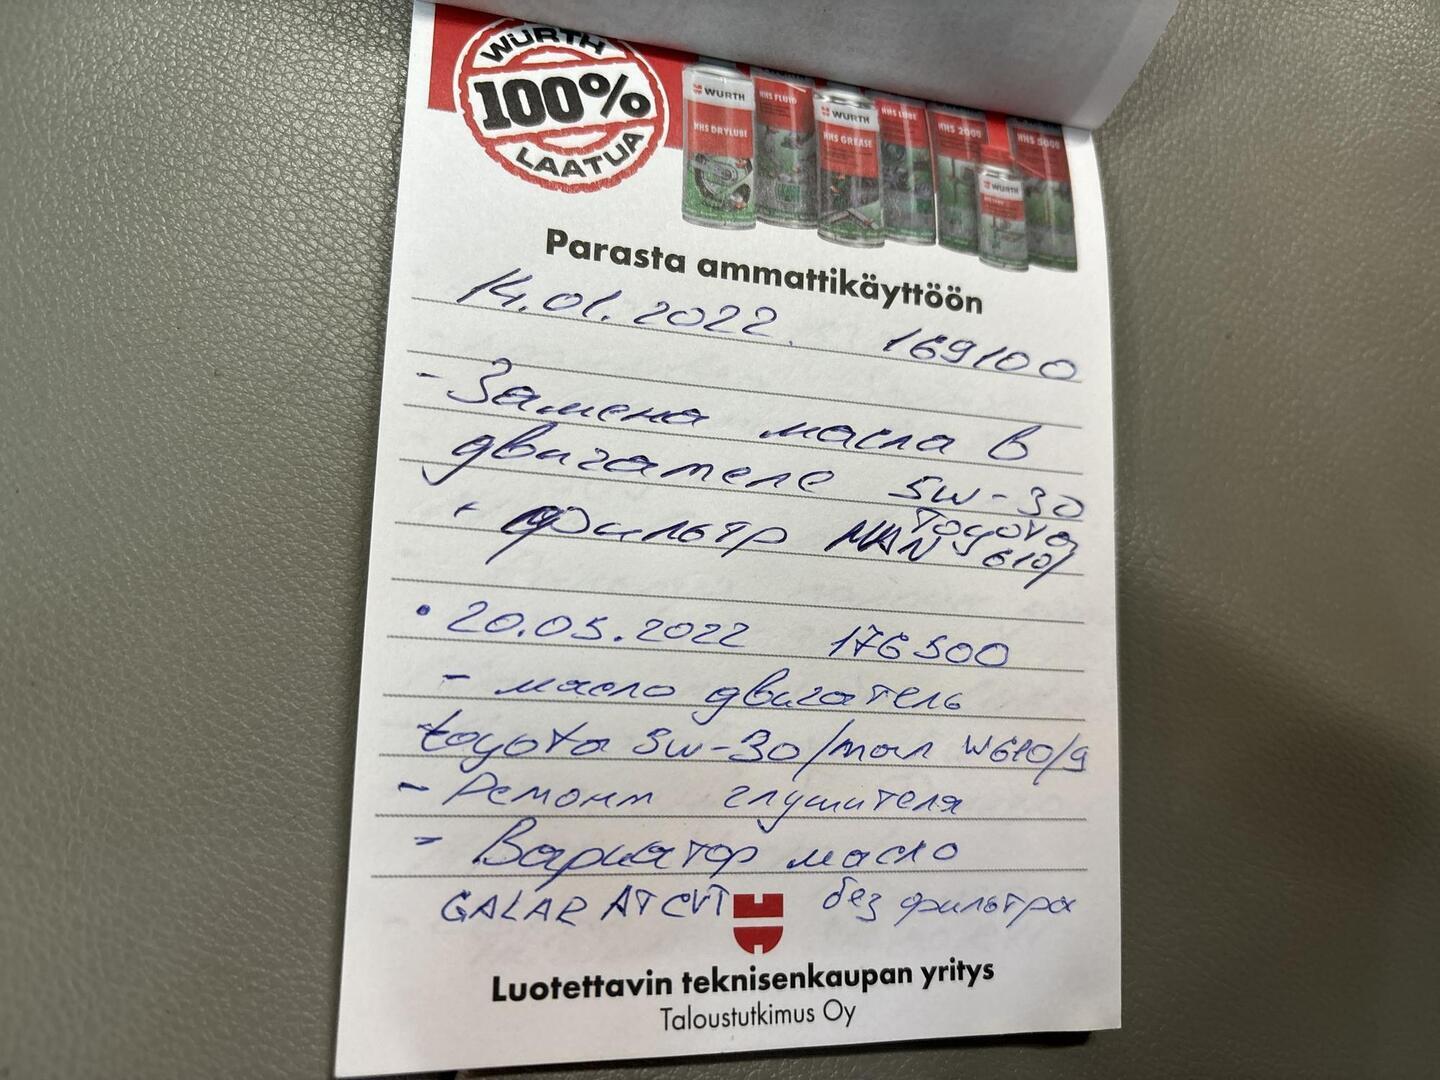 WÜRTH
100%
LAATUA
WÜRTH
HHS DRYLUBE
HHS FLUID
WÜRTH
HHS GREASE
HHS LUBE
HHS 2000
WÜRTH
HHS 5000
Parasta ammattikäyttöön
14.01.2022. 169100
- Замена масла в
двигателе 5w-30
Toyota
+ фильтр MAN 610/
• 20.05.2022 176500
- масло двигатель
toyota 5w-30/man W610/9
- Ремонт глушителя
- Вариатор масло
GALAR ATCVT без фильтра
Luotettavin teknisenkaupan yritys
Taloustutkimus Oy